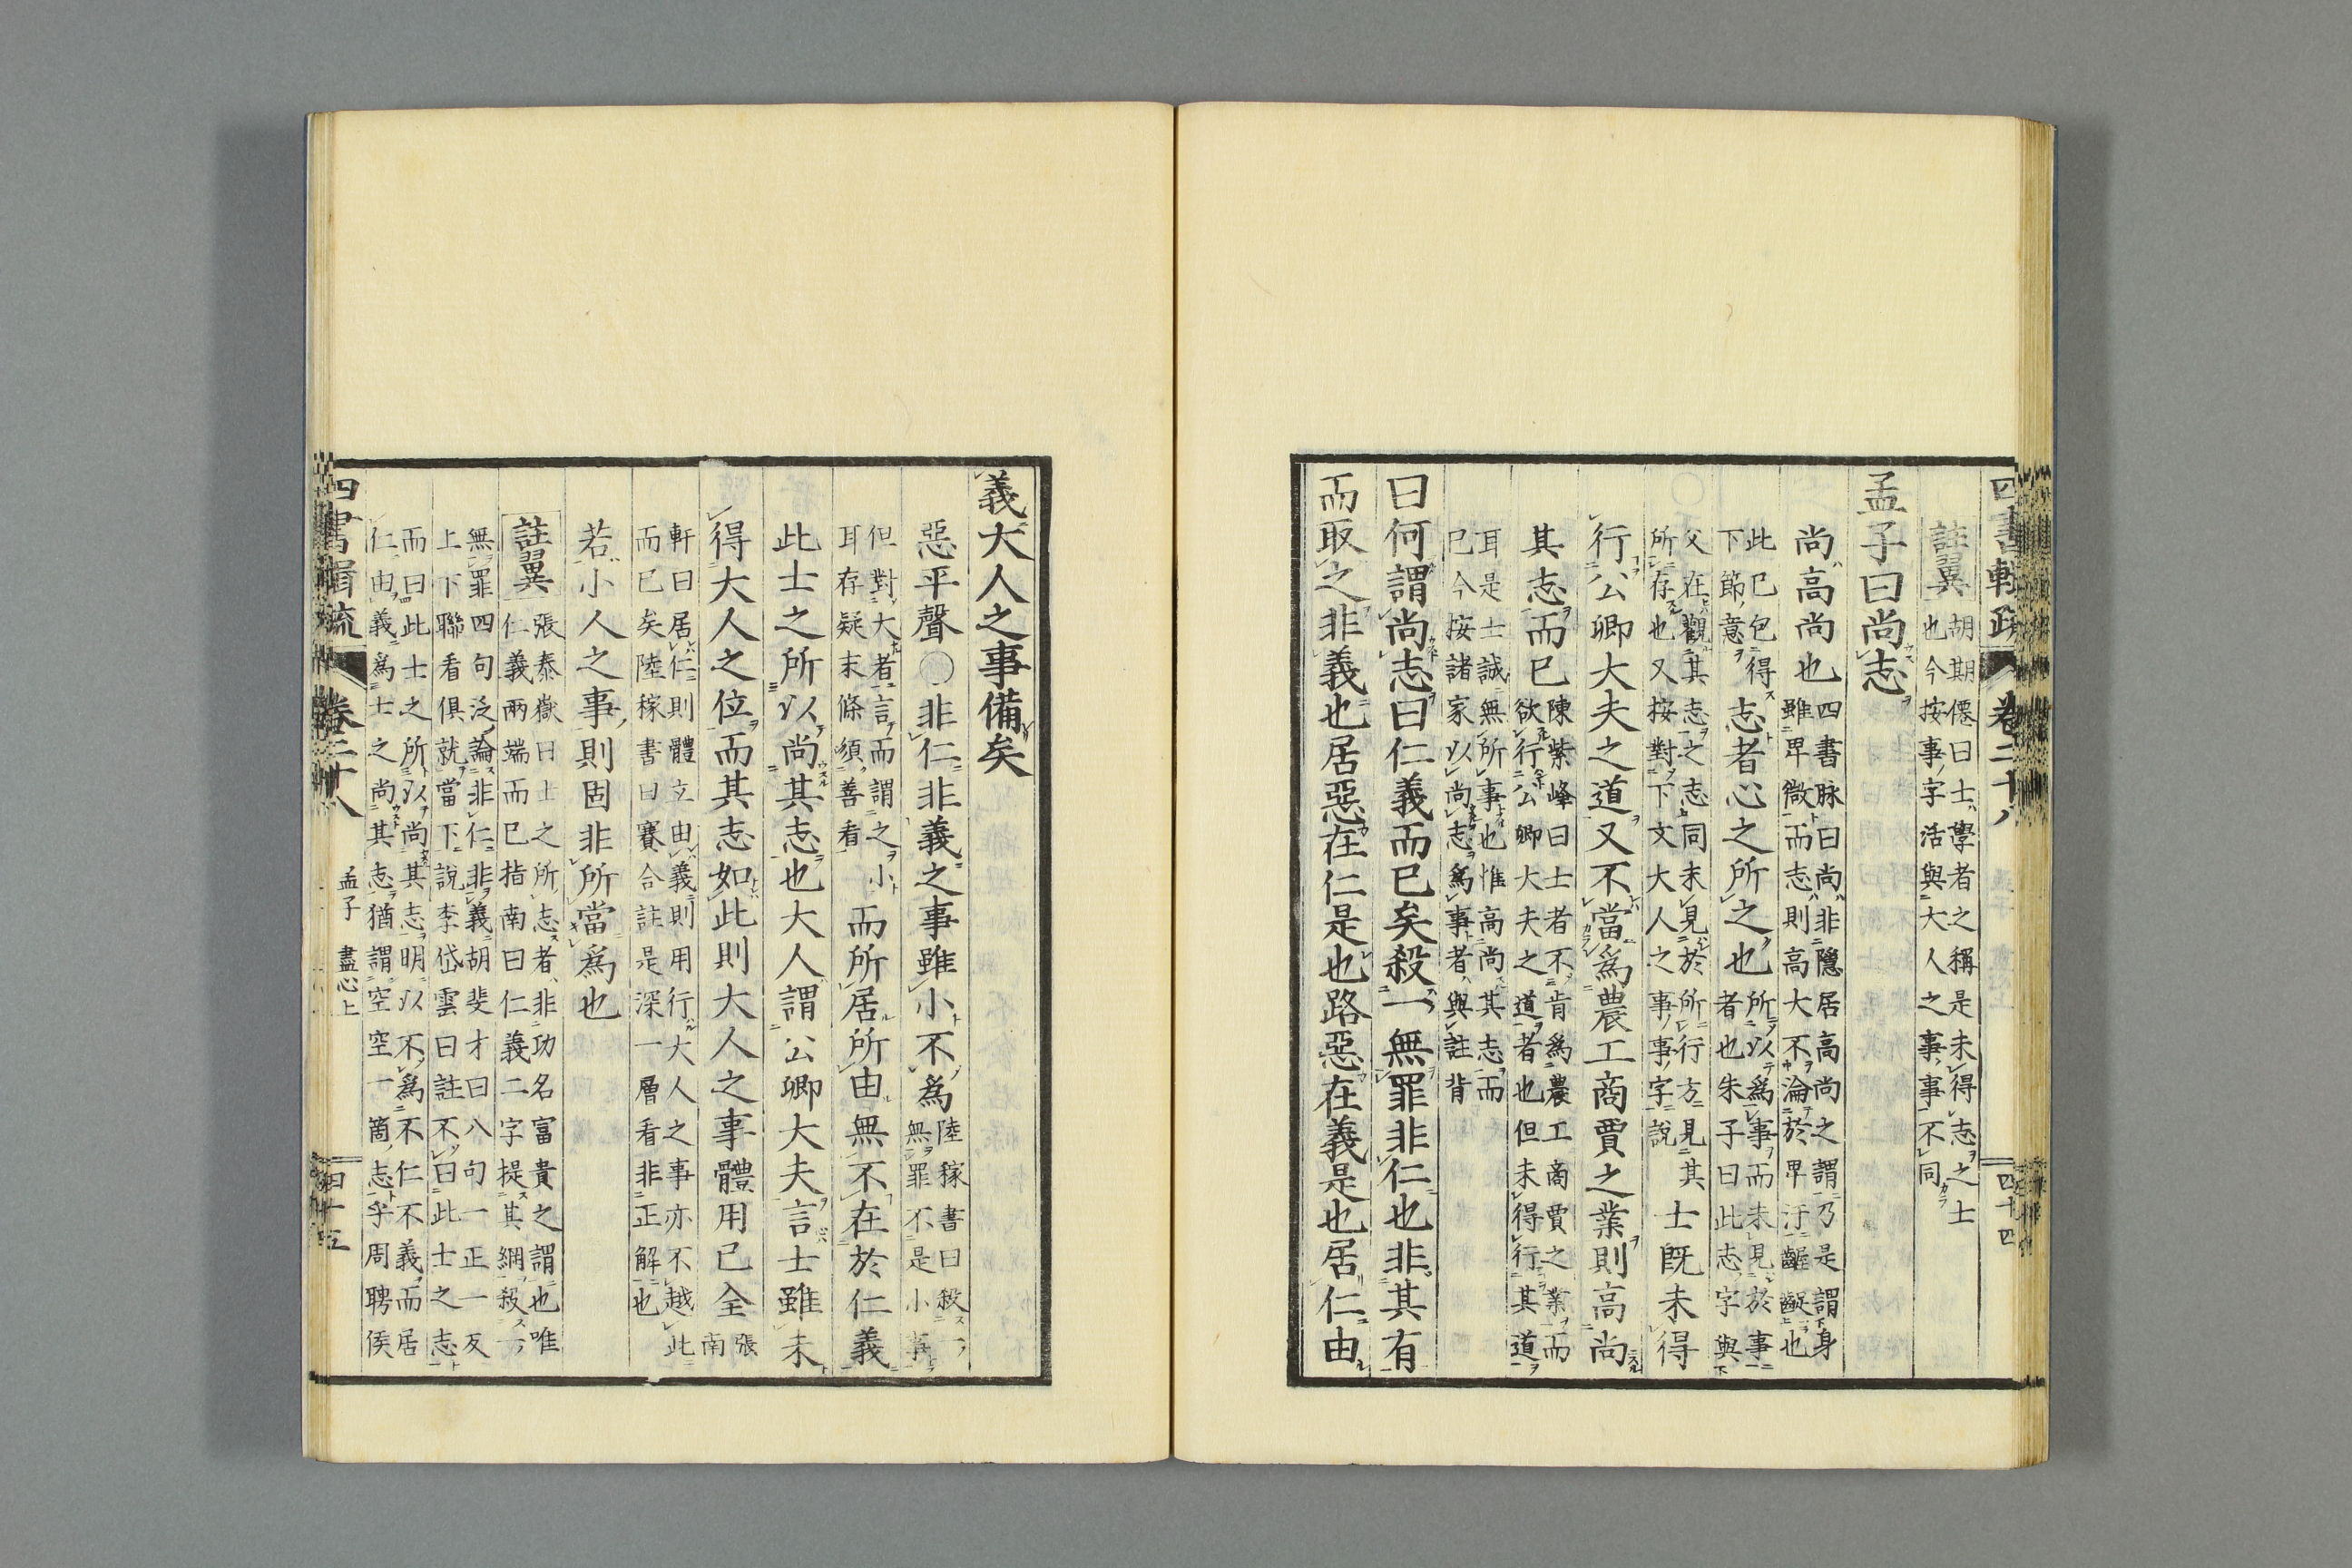 四書輯疏 卷二十八 四十四
註翼 胡期僊曰士學者之稱是未得志之士
也今按事字活與大人之事事不同
孟子曰尚志
尚高尚也 四書脉曰尚非隱居高尚之謂乃是謂身
雖卑微而志則高大不淪於卑汙齷齪也
此已包得
下節意 志者心之所之也 所以爲事而未見於事
者也朱子曰此志字與
父在觀其志之志同未見於所行方見其
所存也又按對下文大人之事事字說 士旣未得
行公卿大夫之道又不當爲農工商賈之業則高尚
其志而已 陳紫峰曰士者不肯爲農工商賈之業而
欲行公卿大夫之道者也但未得行其道
耳是士誠無所事也惟高尚其志而
已今按諸家以尚志爲事者與註背
曰何謂尚志曰仁義而已矣殺一無罪非仁也非其有
而取之非義也居惡在仁是也路惡在義是也居仁由
義大人之事備矣
惡平聲〇非仁非義之事雖小不爲 陸稼書曰殺一
無罪不是小事
但對大者言而謂之小
耳存疑末條須善看 而所居所由無不在於仁義
此士之所以尚其志也大人謂公卿大夫言士雖未
得大人之位而其志如此則大人之事體用已全 張
南
軒曰居仁則體立由義則用行大人之事亦不越此
而已矣陸稼書曰賽合註是深一層看非正解也
若小人之事則固非所當爲也
註翼 張泰嶽曰士之所志者非功名富貴之謂也唯
仁義兩端而已指南曰仁義二字提其綱殺一
無罪四句泛論非仁非義胡斐才曰八句一正一反
上下聯看俱就當下說李岱雲曰註不曰此士之志
而曰此士之所以尚其志明以不爲不仁不義而居
仁由義爲士之尚其志猶謂空空一箇志乎周聘侯
四書輯疏 卷二十八 孟子 盡心上 四十五